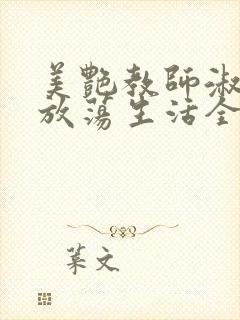 美艷教師淑
放蕩生活全
葉文